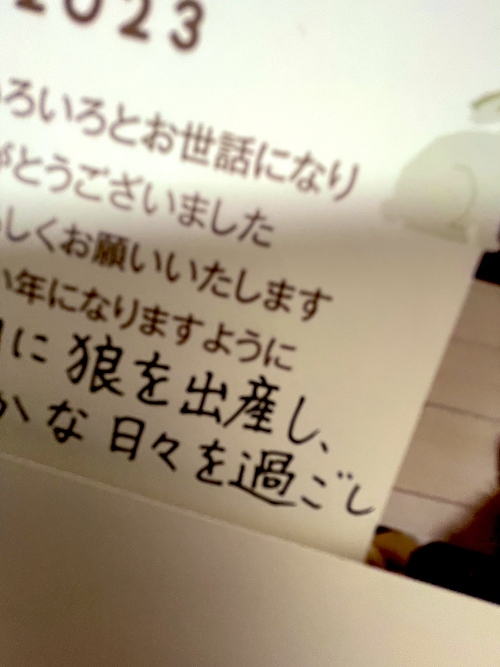 2023
いろいろとお世話になり
がとうございました
しくお願いいたします
い年になりますように
月に狼を出産し、
かな日々を過ごし